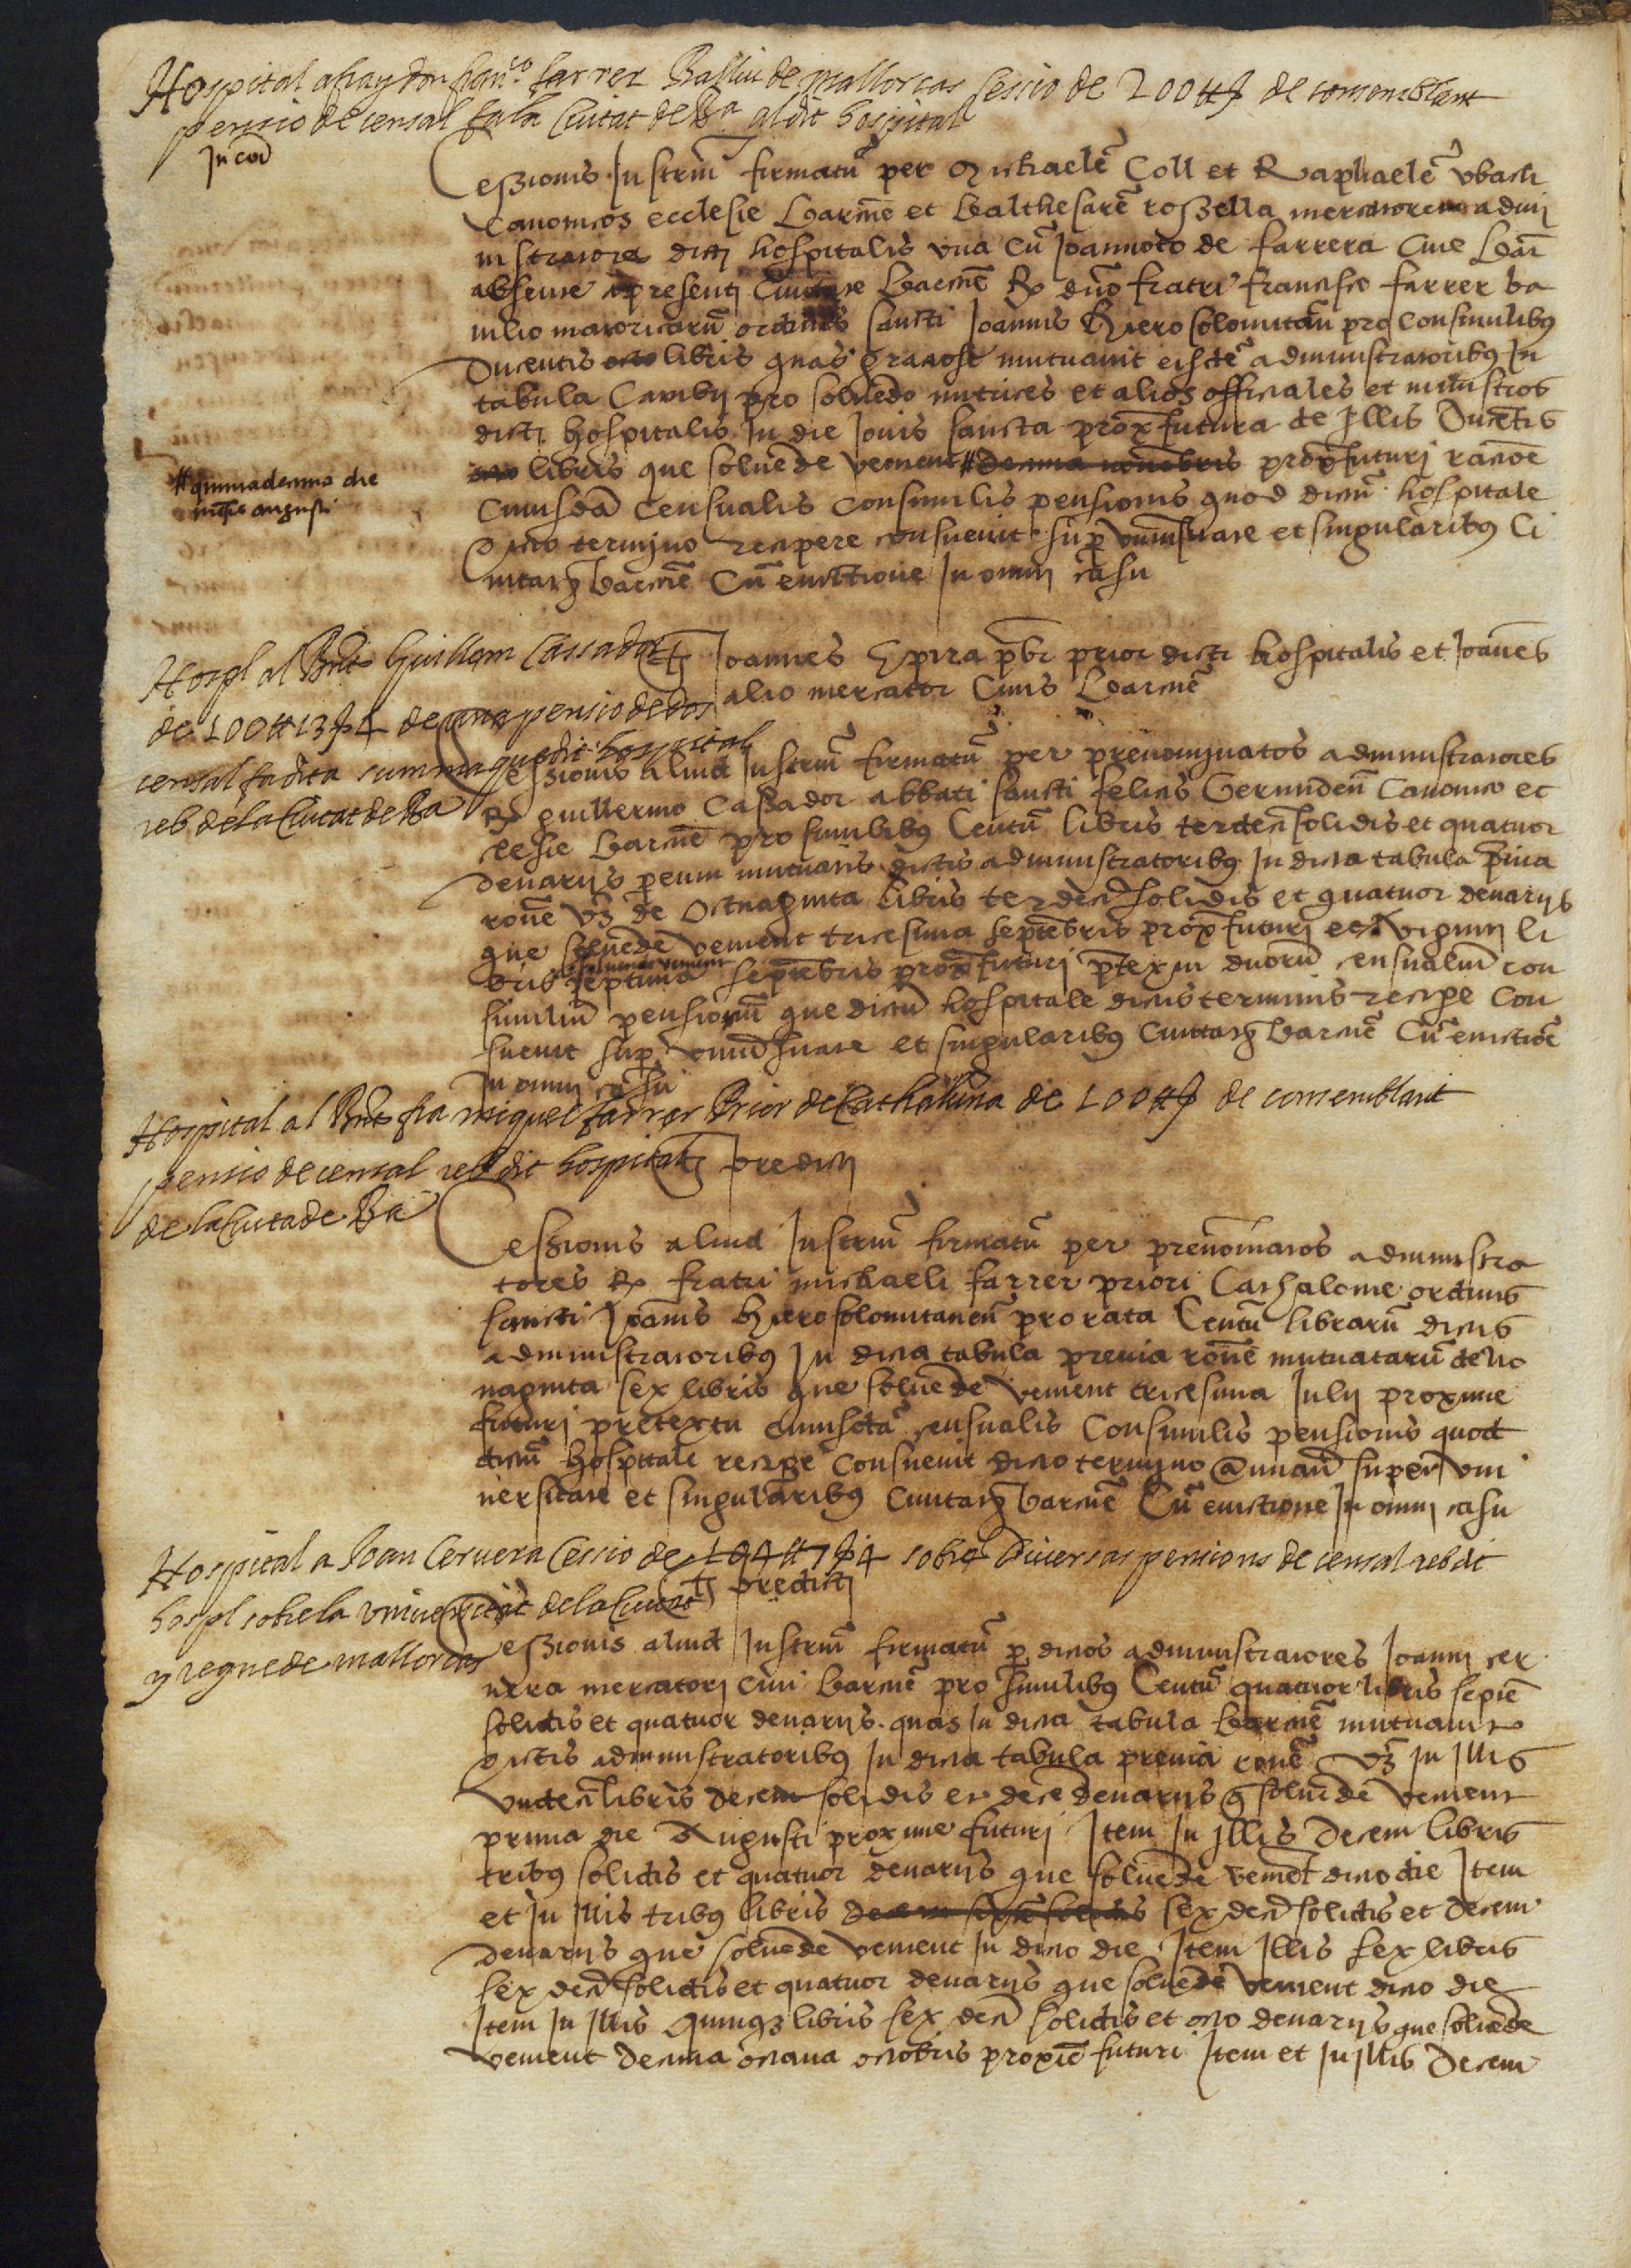 Hospital a fray don fran.co farrer Balliu de mallorcas sessio de 200 ₶ ẞ de consemblant
pensio de censal fa la Ciutat de Ba al dit hospital
In cod
Cessionis Instrm̄ firmatū per Michaelē Coll et Raphaelē vbach
Canonicos ecclesie Barcn̄e et Balthesarē rossella mercatorem admi
nistratores dicti hospitalis vna cū Joannoto de farrera Ciue Bar̄
absente a presenti Ciuitate Barcn̄e Rdo dn̄o fratri francisco farrer ba
iulio maioricarū ordinis sancti Joannis Hierosolomitan̄ pro consimilibus
Ducentis octo libris quas gratiose mutuauit eisdē administratoribus In
tabula Cambij pro soluēdo nutrices et alios officiales et ministros
dicti hospitalis In die Jouis sancta prox̄ futura de Illis Ducētis
octo libris que soluēde venient # decima nouēbris prox̄ futurj racioē
# quintadecima die
mēsis augusti
Cuiusdā Censualis consimilis pensionis quod dictū hospitale
dicto termjno recipere consueuit sup̄ vniuersitate et singularibus Ci
uitatis Barcn̄e Cū euictione In omnj casu
Hospl al Rnt Guillem Cassador
de 100 ₶ 13 ẞ 4 de una pensio de dos
censal fa dita summa que dit hospital
reb de la Ciutat de Ba
Ts Joannes Spira pb̄r prior dicti hospitalis et Joānes
alio mercator Ciuis Barcn̄e
Cessionis aliud Instrm̄ firmatū per prenomjnatos administratores
Rdo guillermo Cassador abbati sancti felicis Gerunden̄ Canonico ec
clesie Barcn̄e pro similibus Centū libris terdecī solidis et quatuor
denarijs per eum mutuatis dictis administratoribus In dicta tabula p̄uia
ronē vz de Octuaginta libris terdecī solidis et quatuor denarijs
que soluēde venient tricesima septēbris prox̄ futurj et viginti li
bris soluende venient septima septēbris prox̄ futurj p̄textu duorū censualiū con
similiū pensionū que dictū hospitale dictis terminis recipe con
sueuit sup̄ vniūsitate et singularibus Ciuitatis Barcn̄e Cū euictiōe
In omnj casu
Hospital al Rnt fra miquel farrer Prior de Cathaluna de 100 ₶ ẞ de consemblant
pensio de censal reb dit hospital
de la Ciutade Ba
Ts predictj
Cessionis aliud Instrm̄ firmatū per prenōinatos administra
tores Rdo fratri michaeli farrer priori Cathalonie ordinis
sancti Joānis Hierosolomitanen̄ pro rata Centū librarū dictis
administratoribus In dicta tabula preuia ronē mutuatarū de no
naginta sex libris que soluēde venient tricesima Julij proxime
futurj pretextu cuiusdā censualis Consimilis pensionis quod
dictū hospitale recipe consueuit dicto termjno annuatī super vni
uersitate et singularibus Ciuitatis Barcn̄e Cū euictione In omnj casu
Hospital a Joan Ceruera Cessio de 104 ₶ 7 ẞ 4 sobre Diuersas pensions de censal reb dit
hospl sobre la vniuersitat de la Ciutat
y regne de mallorcas
Ts predicti
Cessionis aliud Instrm̄ firmatū p̄ dictos administratores Joannj cer
uera mercatorj ciui Barcn̄e pro similibus Centū quatuor libris septē
solidis et quatuor denarijs quas In dicta tabula Barcn̄e mutuauit
dictis administratoribus In dicta tabula preuia ronē vz In Illis
vndecī libris decem solidis et decē denarijs q̄ soluēde venient
prima die Augusti proxime futurj Item In Illis decem libris
tribus solidis et quatuor denarijs que soluēde veniēt dicto die Item
et In Illis tribus libris decem septē solidis sexdecī solidis et decem
denarijs que soluēde venient In dicto die Item Illis sex libris
sexdecī solidis et quatuor denarijs que soluēde venient dicto die
Item In Illis quinqz libris sexdecī solidis et octo denarijs que soluēde
venient decima octaua octobris proxiē futuri Item et In Illis decem